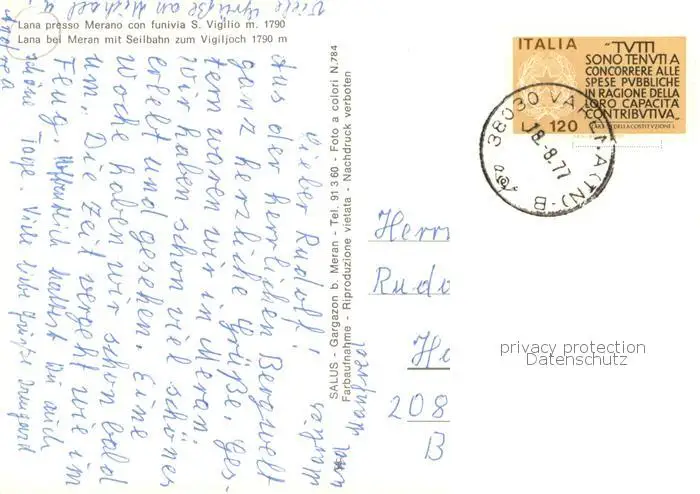 Lana presso Merano con funivia S. Vigilio m. 1790
Lana bei Meran mit Seilbahn zum Vigiljoch 1790 m
Viele Grüße an Michael
Lieber Rudolf!
Aus der herrlichen Bergwelt
ganz herzliche Grüße. Ges-
tern waren wir in Meran.
Wir haben schon viel schönes
erlebt und gesehen. Eine
Woche haben wir schon bald
um. Die Zeit vergeht wie im
Feug. Hoffentlich hattest Du auch
schöne Tage. Viele liebe Grüße Irmgard
und Manfred
SALUS - Gargazon b. Meran - Tel. 91 3 60 - Foto a colori: N.784
Farbaufnahme - Riproduzione vietata - Nachdruck verboten
ITALIA
"TVTTI
SONO TENVTI A
CONCORRERE ALLE
SPESE PVBBLICHE
IN RAGIONE DELLA
LORO CAPACITÀ
CONTRIBVTIVA."
L. 120
38030
(TN)-B
18.-8.77
Herrn
Rudo
He
208
B
privacy protection
Datenschutz